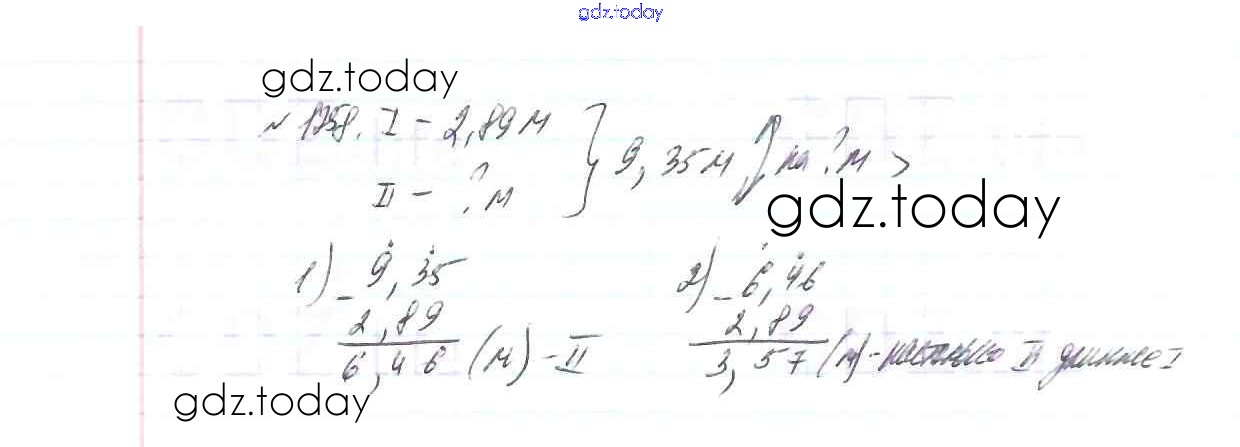 gdz.today
gdz.today
№ 1258. I - 2,89 м } 9,35 м на ? м >
II - ? м
gdz.today
1) - 9,35 2) - 6,46
2,89 2,89
6,46 (м) - II 3,57 (м) - настолько II длиннее I
gdz.today